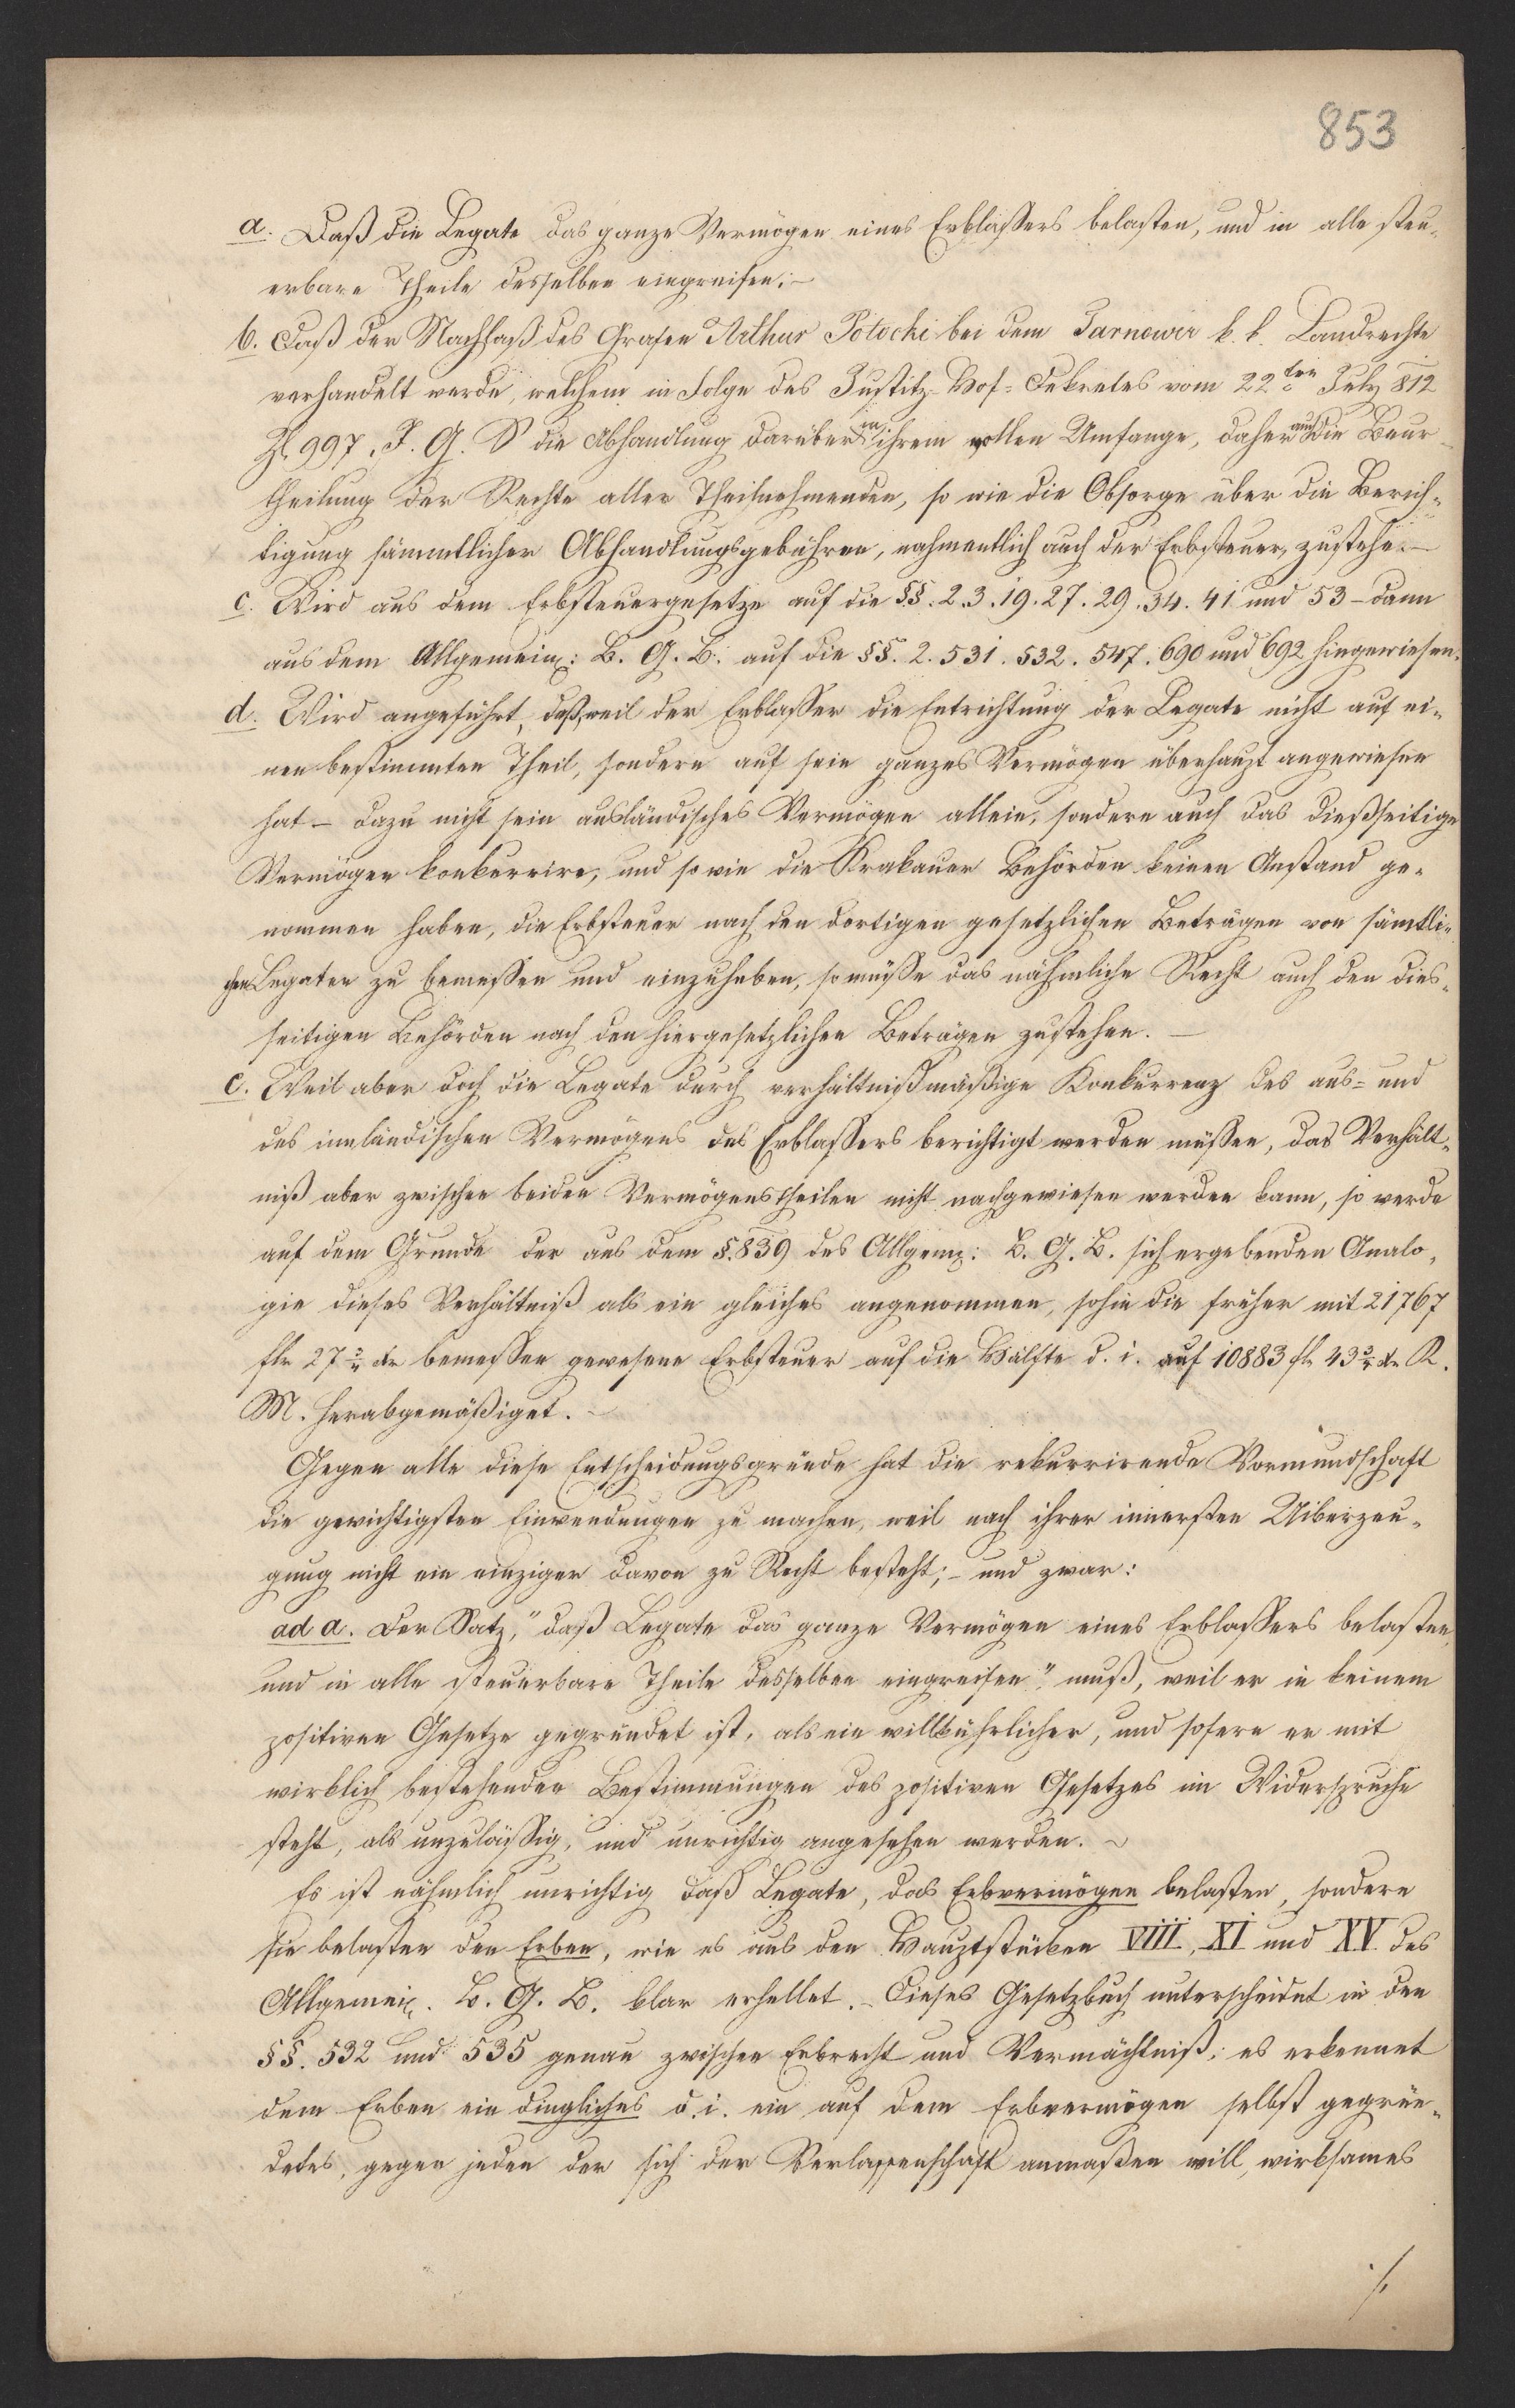 853
a. Daß die Legate das ganze Vermögen eines Erblaßers belasten, und in alle steu-
erbare Theile desselben eingreifen;-
b. daß der Nachlaß des Grafen Arthur Potocki bei dem Tarnower k. k. Landrechte
verhandelt werde, welchem in Folge des Justitz-Hof-Dekretes vom 22ten July 812
Zl. 997. J. G. S die Abhandlung darüber in ihrem vollen Umfange, daher auch die Beur-
theilung der Rechte aller Theilnehmenden, so wie die Obsorge über die Berich-
tigung sämmtlicher Abhandlungsgebühren, nahmentlich auch der Erbsteuer, zustehe.-
c. Wird aus dem Erbsteuergesetze auf die §§. 2. 3. 19. 27. 29. 34. 41 und 53 - dann
aus dem Allgemein: B. G. B. auf die §§. 2. 531. 532. 547. 690 und 692 hingewiesen.
d. Wird angeführt, daß, weil der Erblaßer die Entrichtung der Legate nicht auf ei-
nen bestimmten Theil, sondern auf sein ganzes Vermögen überhaupt angewiesen
hat - dazu nicht sein ausländisches Vermögen allein, sondern auch das dießseitige
Vermögen konkurrire, und so wie die Krakauer Behörden keinen Anstand ge-
nommen haben, die Erbsteuer nach den dortigen gesetzlichen Beträgen von sämtli-
chen Legaten zu bemeßen und einzuheben, so müße das nähmliche Recht auch den dies-
seitigen Behörden nach den hiergesetzlichen Beträgen zustehen. -
e. Weil aber doch die Legate durch verhältnißmäßige Konkurrenz des aus- und
des innländischen Vermögens des Erblaßers berichtigt werden müßen, das Verhält-
niß aber zwischen beiden Vermögenstheilen nicht nachgewiesen werden kann, so werde
auf dem Grunde der aus dem §. 839 des Allgem: B. G. B. sich ergebenden Analo-
gie dieses Verhältniß als ein gleiches angenommen, sohin die früher mit 21767
flr 27 2/4 xr bemeßen gewesene Erbsteuer auf die Hälfte d. i. auf 10883 flr 43 3/4 xr K.
M. herabgemäßiget. -
Gegen alle diese Entscheidungsgründe hat die rekurrirende Vormundschaft
die gewichtigsten Einwendungen zu machen, weil nach ihrer innersten Uiberzeu-
gung nicht ein einziger davon zu Recht besteht; - und zwar:
ad a. Der Satz, "daß Legate das ganze Vermögen eines Erblaßers belasten,
und in alle steuerbare Theile desselben eingreifen" muß, weil er in keinem
positiven Gesetze gegründet ist, als ein willkührlicher, und sofern er mit
wirklich bestehenden Bestimmungen des positiven Gesetzes im Widerspruche
steht, als unzuläßig, und unrichtig angesehen werden. -
Es ist nähmlich unrichtig daß Legate, das Erbvermögen belasten, sondern
sie belasten den Erben, wie es aus den Hauptstücken VIII, XI und XV des
Allgemein. B. G. B. klar erhellet. - Dieses Gesetzbuch unterscheidet in den
§§. 532 und 535 genau zwischen Erbrecht und Vermächtniß; es erkennet
dem Erben ein dingliches d. i. ein auf dem Erbvermögen selbst gegrün-
detes, gegen jeden der sich der Verlassenschaft anmaßen will, wirksames
./.